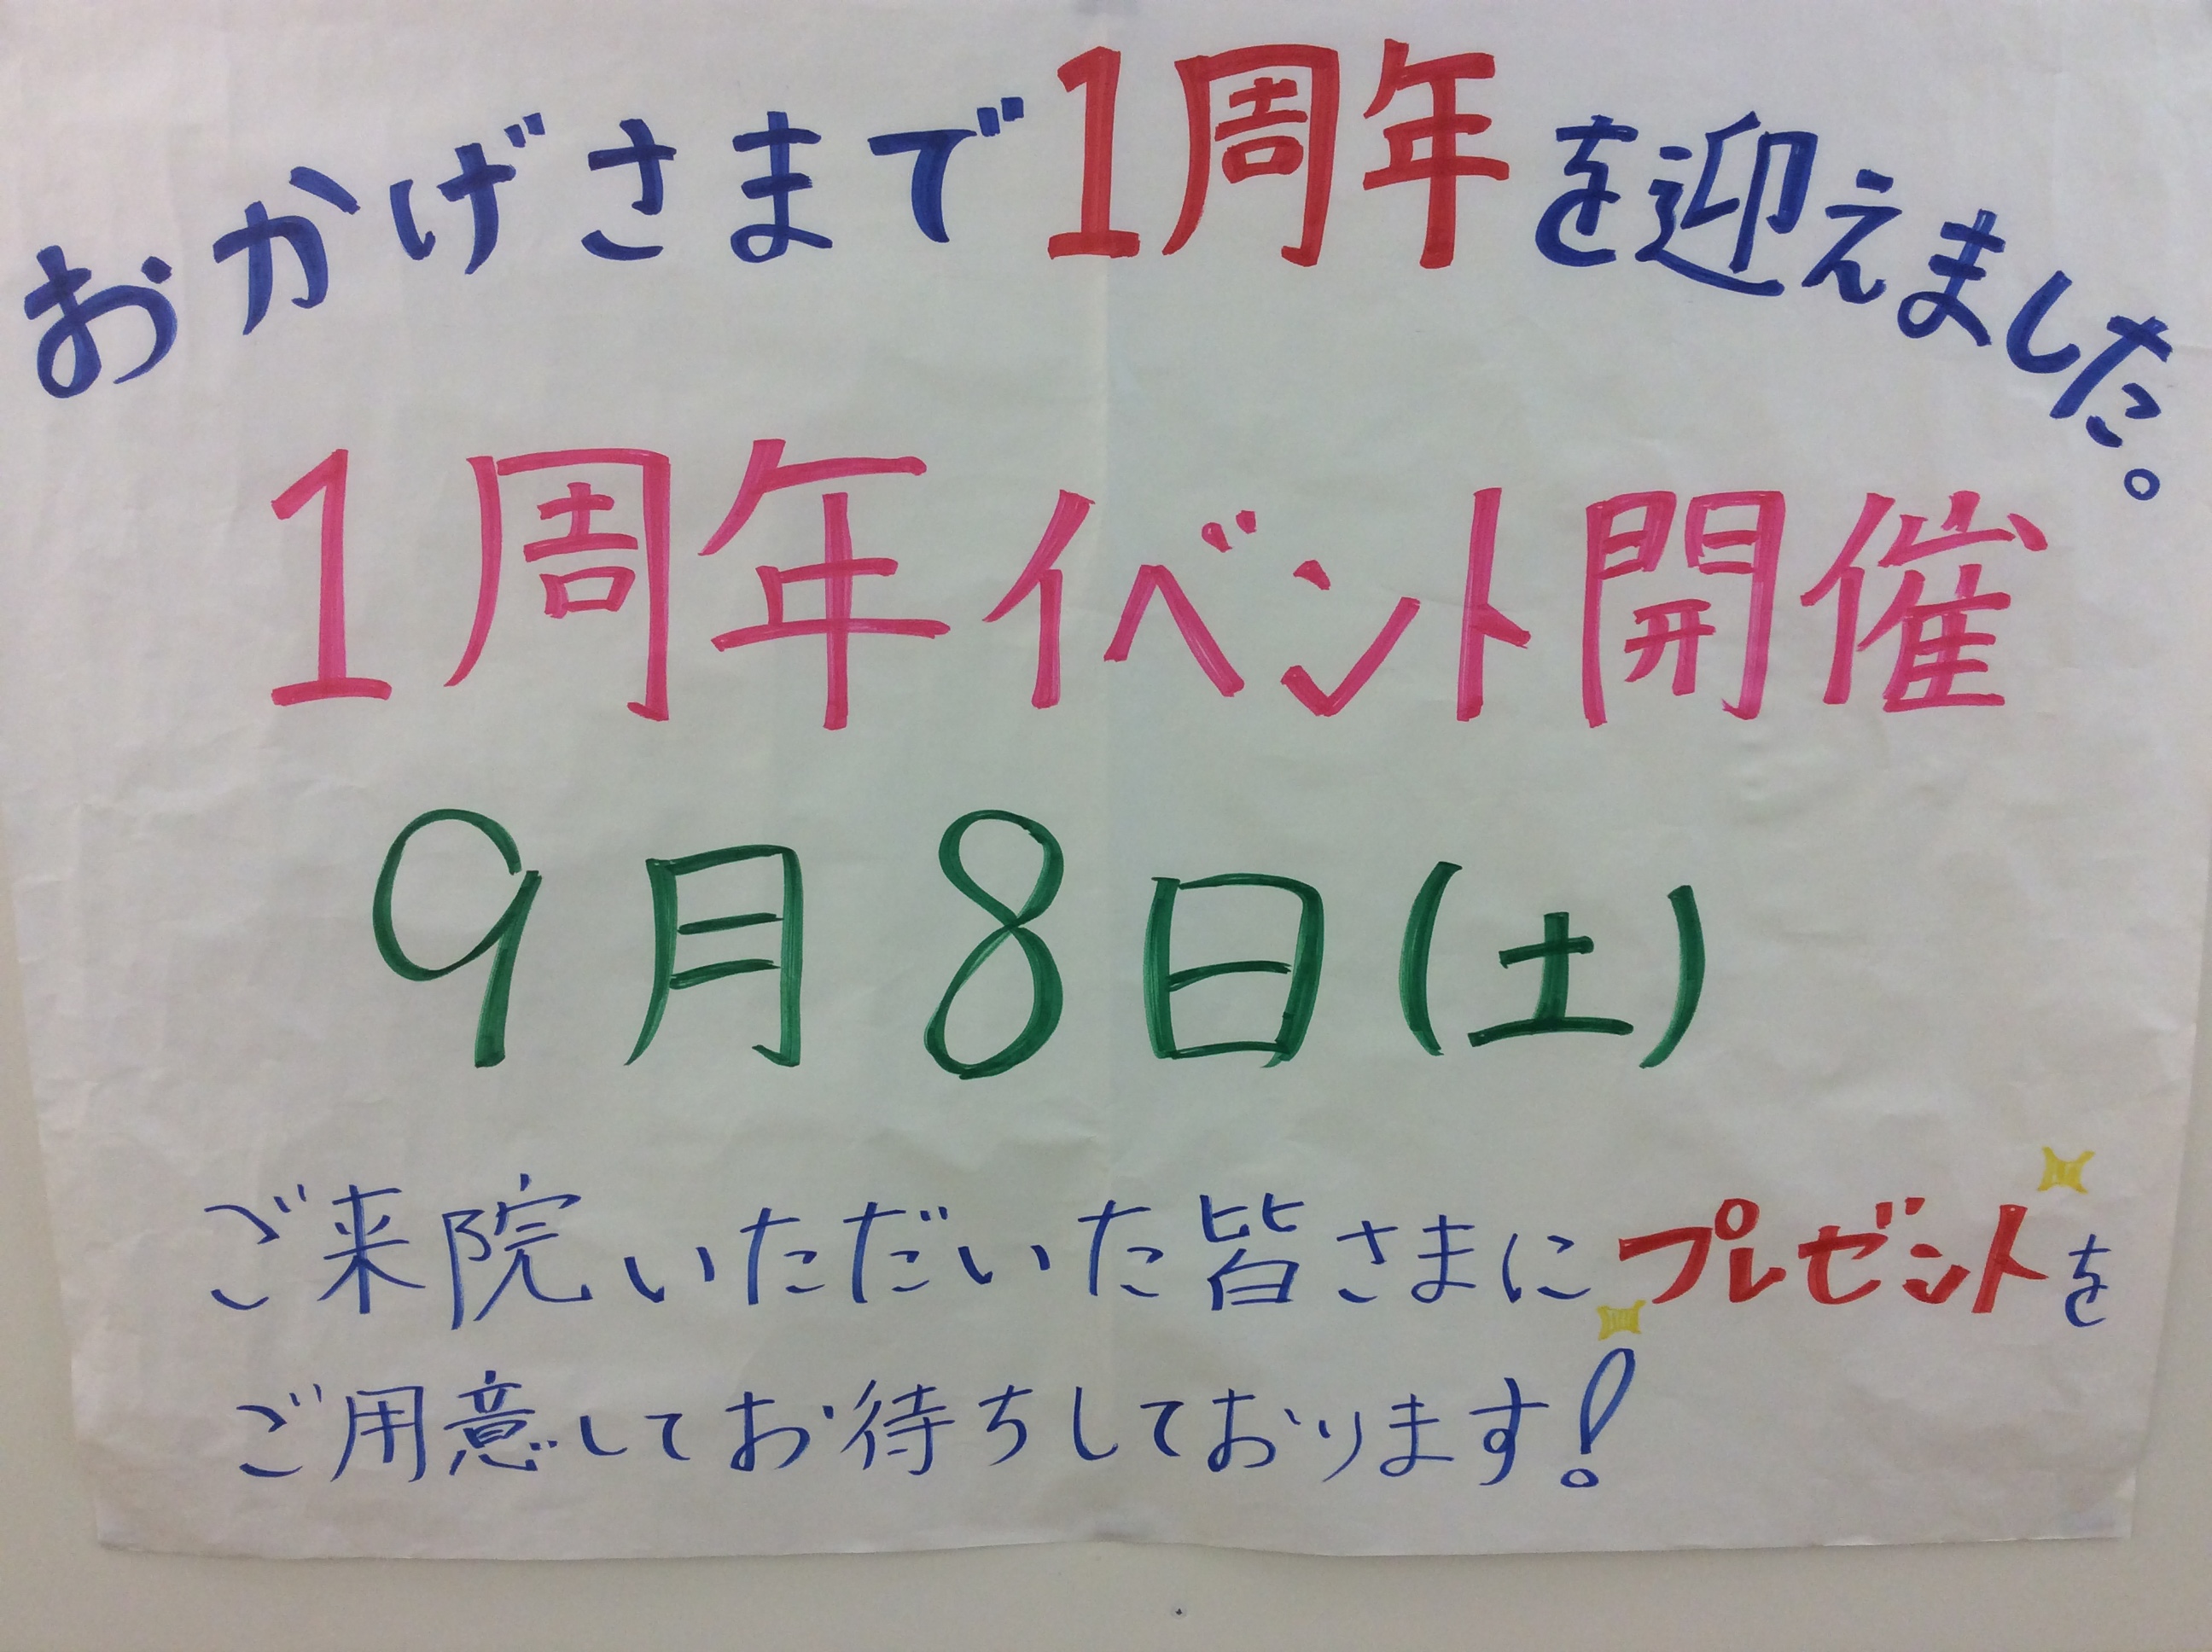 おかげさまで1周年を迎えました。
1周年イベント開催
9月8日(土)
ご来院いただいた皆さまにプレゼントを
ご用意してお待ちしております!